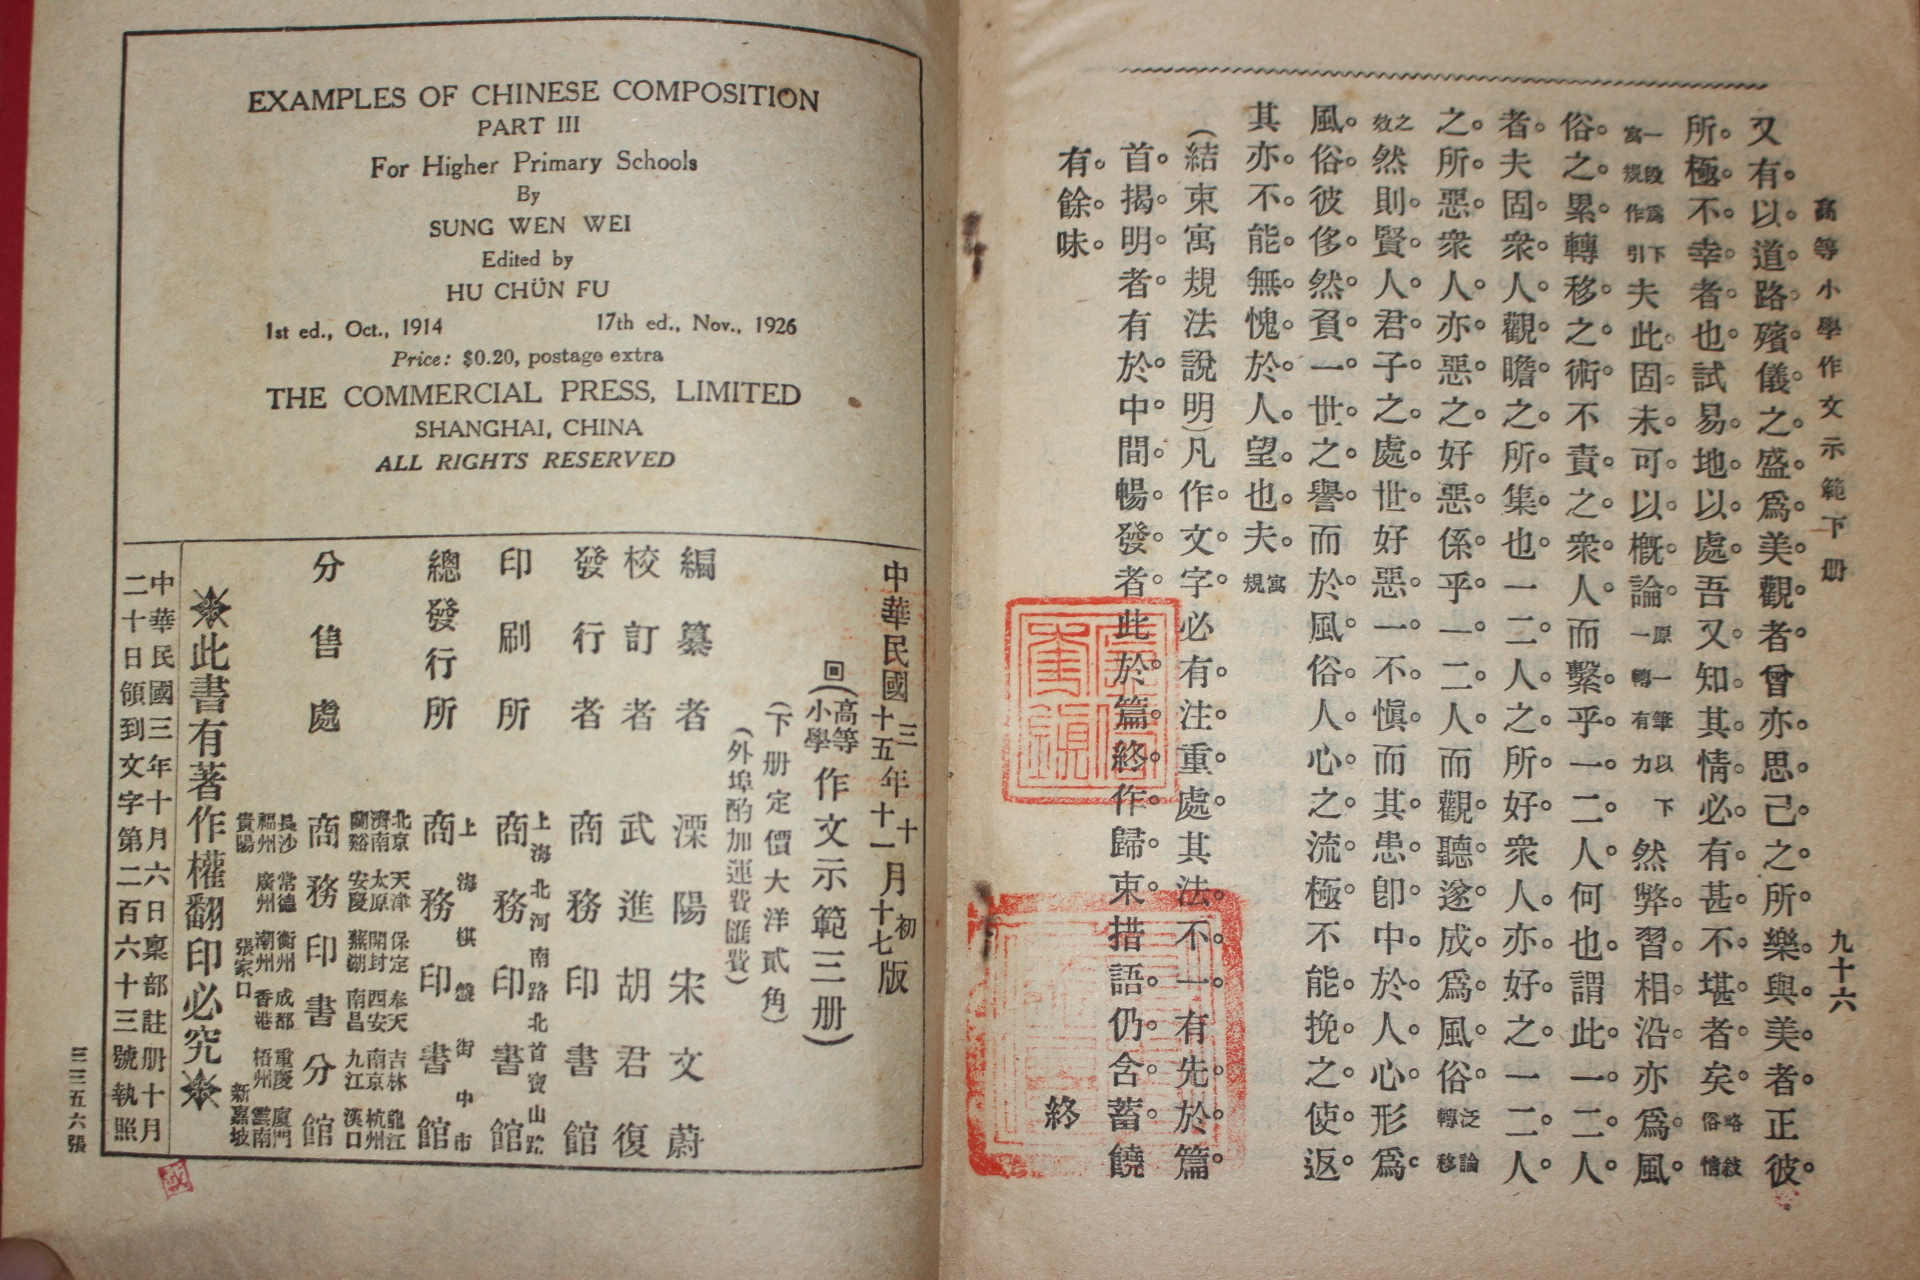 高等小學作文示範下册
九十六
又有。以。道。路。殯。儀。之。盛。爲。美。觀。者。曾亦。思。己。之。所。樂。與。美。者。正彼。
所。極。不。幸。者。也。試易。地。以。處。吾又。知。其。情。必。有。甚。不。堪。者。矣。略敍俗情
一段爲下寓規作引夫此。固。未。可。以。概。論。原一筆以一轉有力下然弊。習。相。沿。亦爲。風。
俗。之。累。轉移。之。術。不責。之。衆。人。而繫。乎。一。二。人。何也。謂此。一。二。人
者。夫固。衆。人。觀。瞻。之。所。集。也一二。人。之。所。好。衆人。亦。好。之。一二。人。
之。所。惡。衆人。亦。惡。之。好惡。係。乎。一。二。人。而觀。聽。遂。成。爲。風。俗。泛論轉移
之效然則。賢。人。君。子。之。處。世。好惡。一。不。愼。而其。患。卽。中。於。人。心。形爲。
風。俗。彼侈。然。負。一。世。之。譽。而於。風。俗。人。心。之。流。極。不。能。挽。之。使。返。
其亦。不。能。無。愧。於。人。望。也。夫。寓規
(結束寓規法說明)凡作。文。字。必有。注。重。處。其法。不。一。有先。於。篇。
首。揭。明。者。有於。中。間。暢。發。者。此於。篇。終。作。歸。束。措。語。仍。含。蓄。饒
有。餘。味。
終
EXAMPLES OF CHINESE COMPOSITION
PART III
For Higher Primary Schools
By
SUNG WEN WEI
Edited by
HU CHÜN FU
1st ed., Oct., 1914 17th ed., Nov., 1926
Price: $0.20, postage extra
THE COMMERCIAL PRESS, LIMITED
SHANGHAI, CHINA
ALL RIGHTS RESERVED
中華民國三年十月初版
十五年十一月十七版
回(高等小學作文示範三册)
(下册定價大洋貳角)
(外埠酌加運費匯費)
編纂者 溧陽宋文蔚
校訂者 武進胡君復
發行者 商務印書館
印刷所 上海北河南路北首寶山路 商務印書館
總發行所 上海棋盤街中市 商務印書館
分售處 北京 天津 保定 奉天 吉林 龍江
濟南 太原 開封 西安 南京 杭州
蘭谿 安慶 蕪湖 南昌 九江 漢口
商務印書分館
長沙 常德 衡州 成都 重慶 廈門
福州 廣州 潮州 香港 梧州 雲南
貴陽 張家口 新嘉坡
此書有著作權翻印必究
中華民國三年十月六日稟部註册十月
二十日領到文字第二百六十三號執照
三三五六張